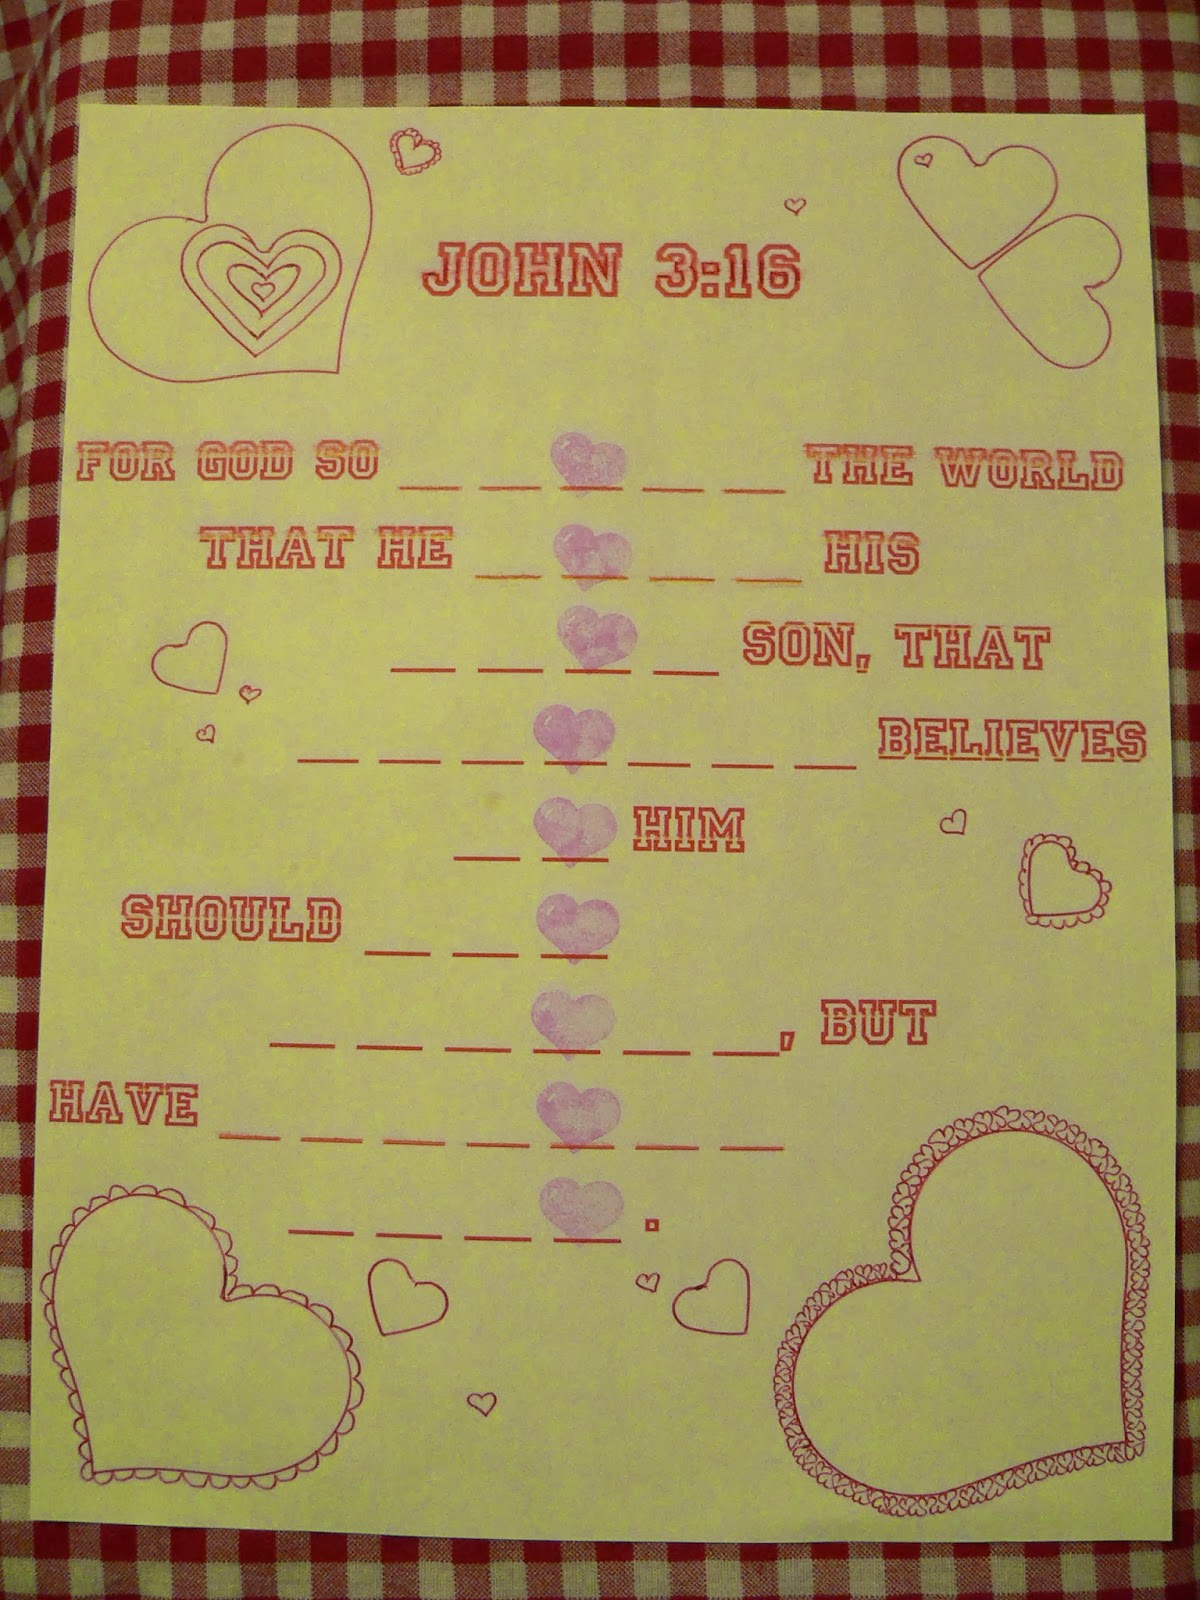 JOHN 3:16
FOR GOD SO _ _ _ _ _ THE WORLD
THAT HE _ _ _ _ HIS
_ _ _ _ SON, THAT
_ _ _ _ _ _ _ BELIEVES
_ _ HIM
SHOULD _ _ _
_ _ _ _ _ _, BUT
HAVE _ _ _ _ _ _ _
_ _ _ _ .